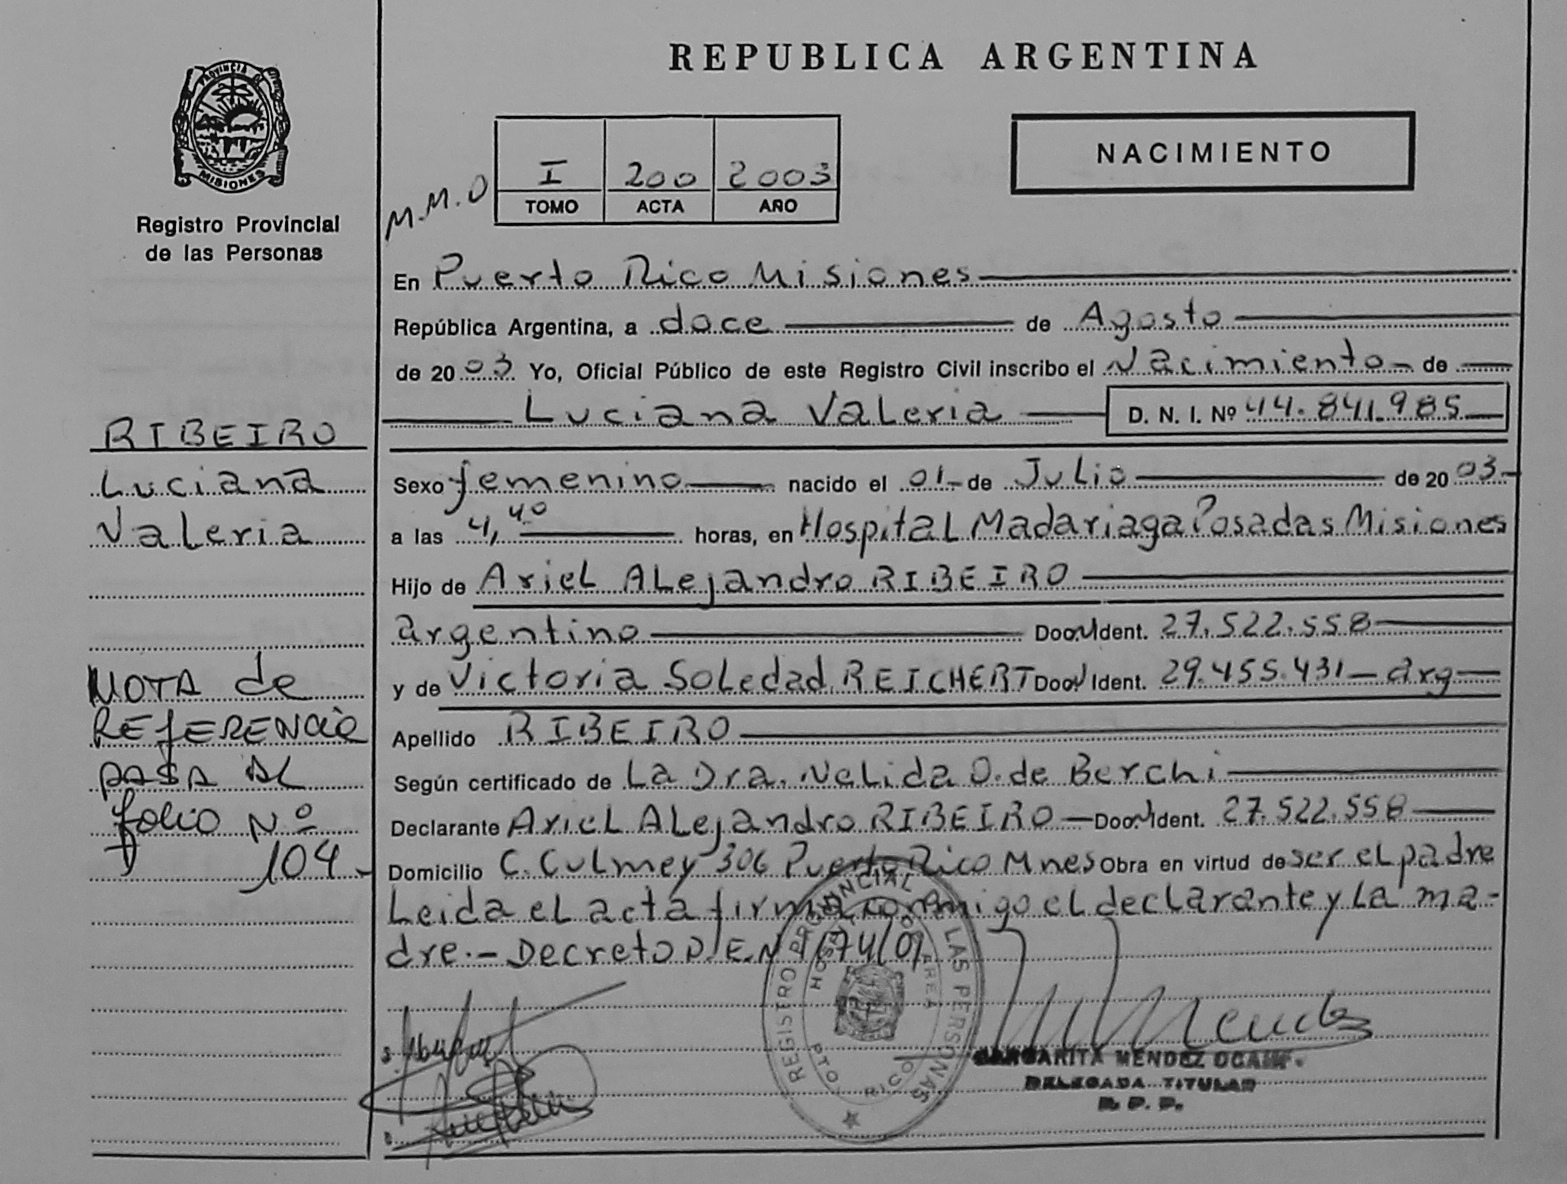 REPUBLICA ARGENTINA
PROVINCIA DE
MISIONES
Registro Provincial
de las Personas
M.M.O
I 200 2003
TOMO ACTA AÑO
NACIMIENTO
En Puerto Rico Misiones
República Argentina, a doce de Agosto
de 2003. Yo, Oficial Público de este Registro Civil inscribo el Nacimiento de
Luciana Valeria D. N. I. Nº 44.841.985
RIBEIRO
Luciana
Valeria
Sexo femenino nacido el 01 de Julio de 2003
a las 4,40 horas, en Hospital Madariaga Posadas Misiones
Hijo de Ariel Alejandro RIBEIRO
argentino Ident. 27.522.558
y de Victoria Soledad REICHERT Ident. 29.455.431 - arg
Apellido RIBEIRO
Según certificado de La Dra. Nelida O. de Berchi
Declarante Ariel Alejandro RIBEIRO Ident. 27.522.558
Domicilio C. Culmey 306 Puerto Rico Mnes Obra en virtud de ser el padre
Leida el acta firma conmigo el declarante y La ma-
dre.- Decreto P.E.N 1174/01
NOTA de
REFERENCIA
PASA AL
folio Nº
104.-
REGISTRO PROVINCIAL DE LAS PERSONAS
PTO RICO
MARGARITA MENDEZ OCAMP.
DELEGADA TITULAR
R. P. P.